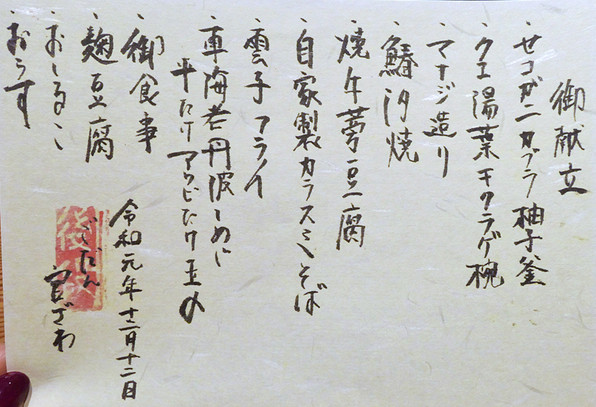 御献立
・セコガニカブラ柚子釜
・クエ湯葉キクラゲ椀
・マナジ造り
・鰆汐焼
・焼牛蒡豆腐
・自家製カラスミそば
・雲子フライ
・車海老丹波しめじ
平たけアワビたけ玉〆
・御食事
・麹豆腐
・おしるこ
・おうす
令和元年十二月十二日
ごだん
宮ざわ
後段